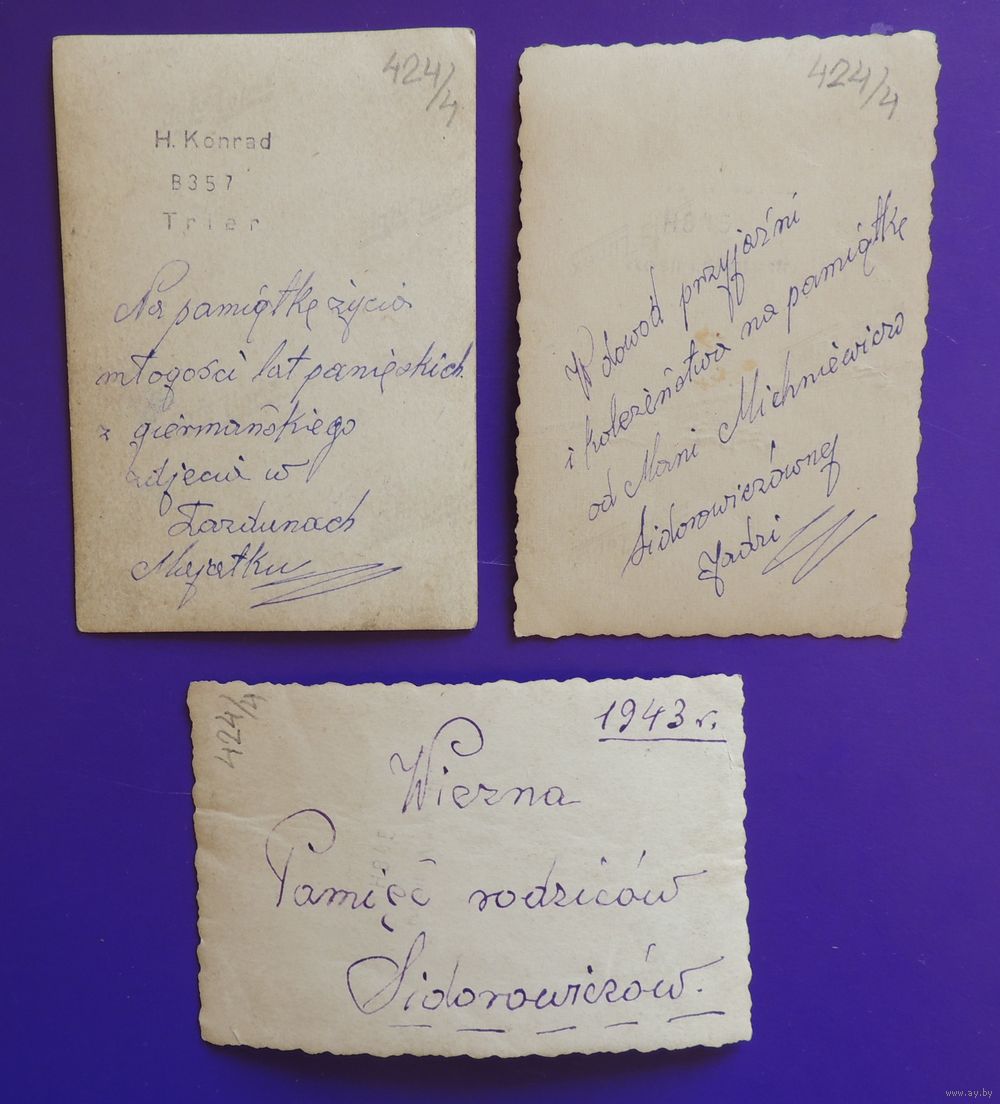 424/4
H. Konrad
B357
Trier
Na pamiątkę życia
młogości lat panięskich
z giermańskiego
zdjęcia w
Łazdunach
Majątku
424/4
W dowód przyjaźni
i koleżeństwa na pamiątkę
od Mani Michniewicz
Sidorowiczównej
Jadzi
424/4
1943 r.
Wiezna
Pamięć rodziców
Sidorowiczów.
www.ay.by